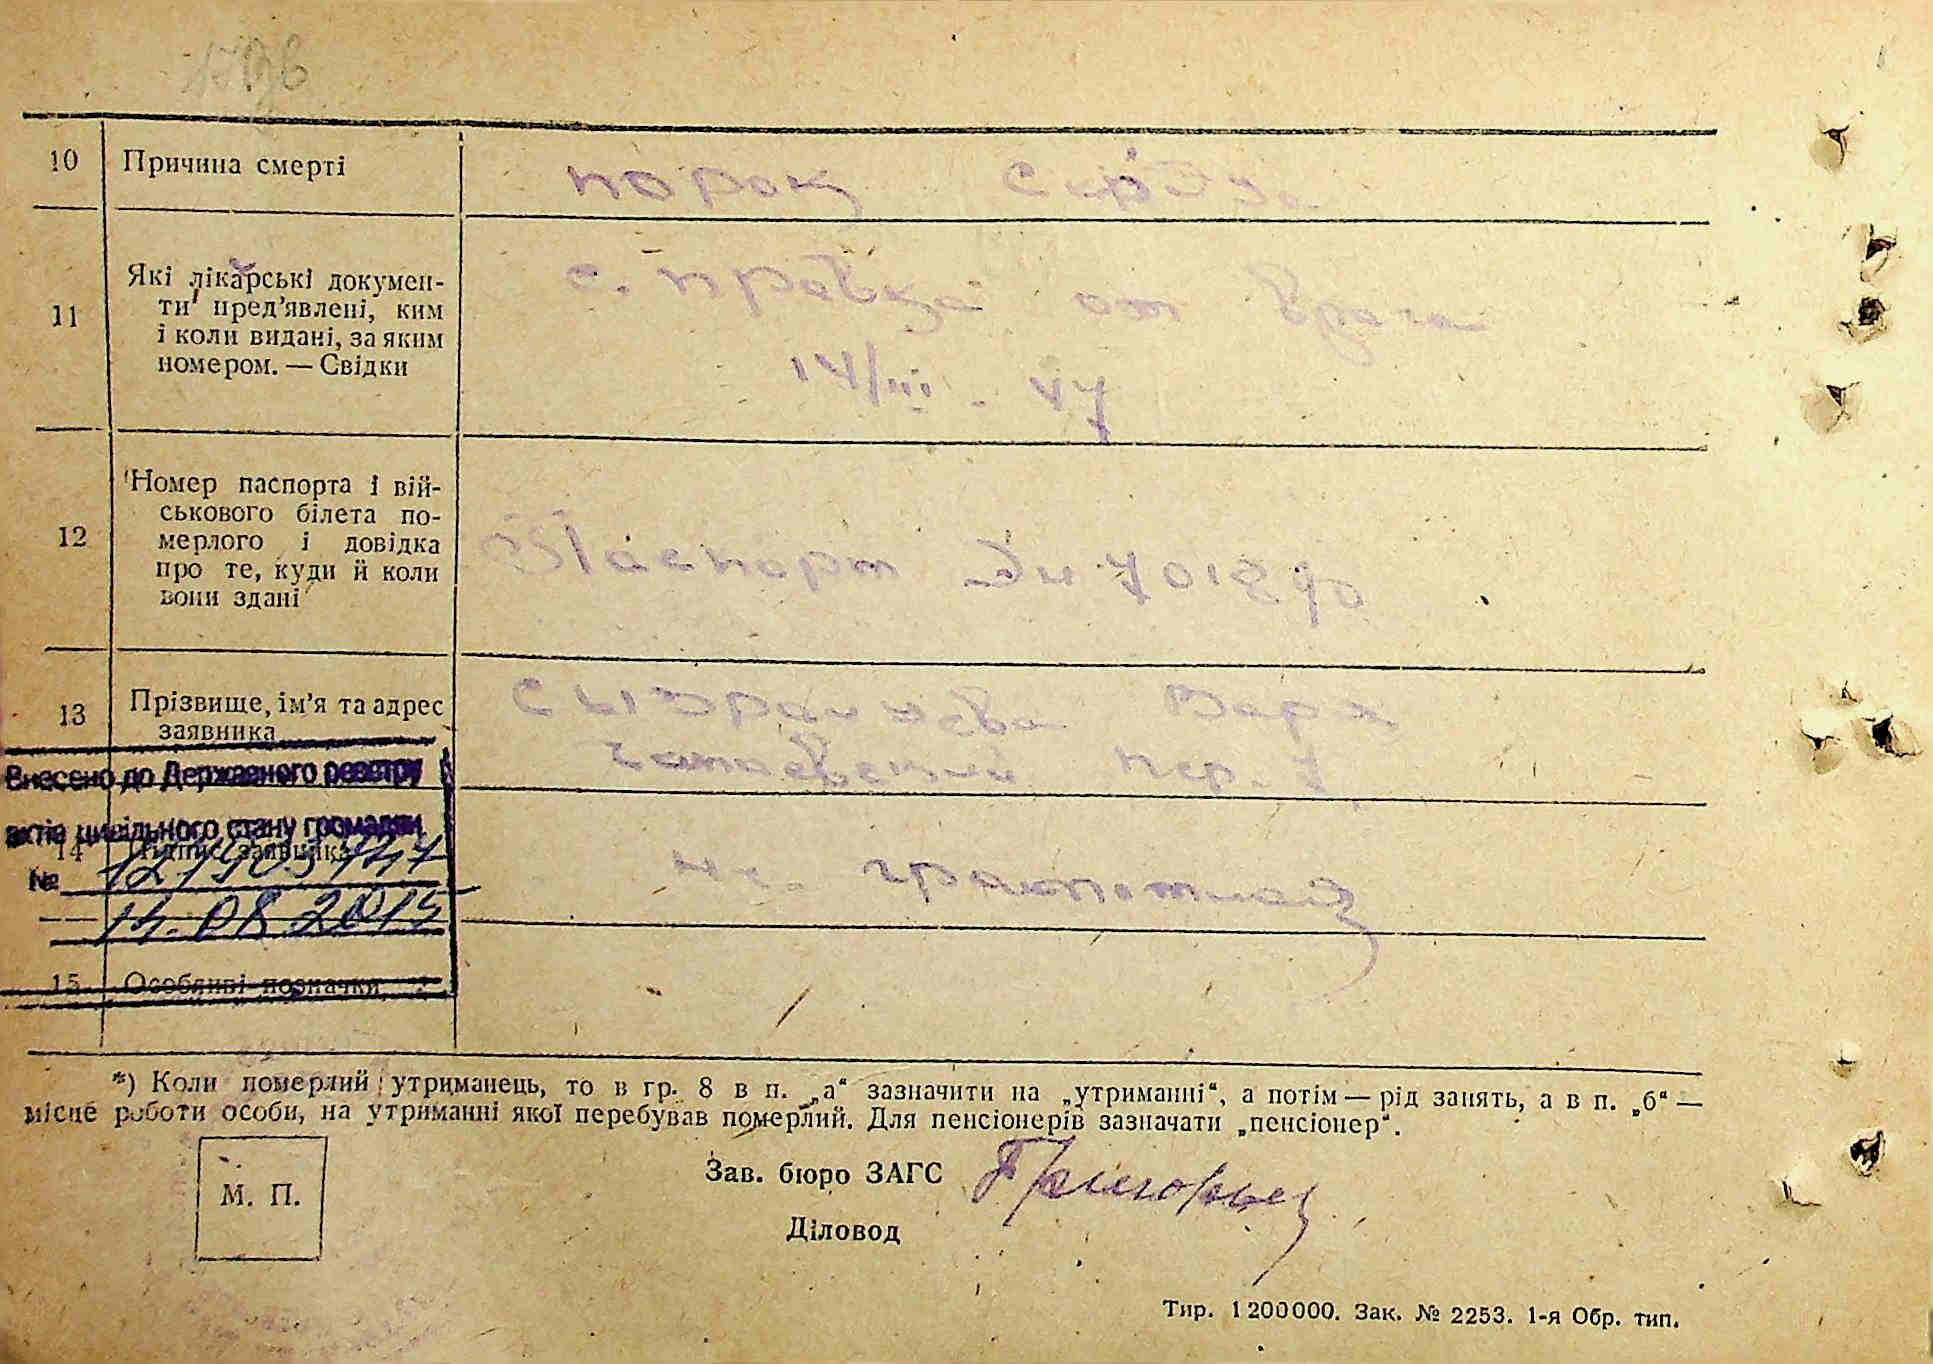 10 Причина смерті порок сердца
11 Які лікарські докумен-
ти пред'явлені, ким
і коли видані, за яким
номером. — Свідки
справка от врача
14/III - 47
12 Номер паспорта і вій-
ськового білета по-
мерлого і довідка
про те, куди й коли
вони здані
Паспорт
13 Прізвище, ім'я та адрес
заявника
Варя
пер.
Внесено до Державного реєстру
актів цивільного стану громадян
14 Підпис заявника
не грамотная
№
2015
15 Особливі позначки
*) Коли померлий утриманець, то в гр. 8 в п. „а“ зазначити на „утриманні“, а потім — рід занять, а в п. „б“ —
місце роботи особи, на утриманні якої перебував померлий. Для пенсіонерів зазначати „пенсіонер“.
М. П.
Зав. бюро ЗАГС
Діловод
Тир. 1200000. Зак. № 2253. 1-я Обр. тип.